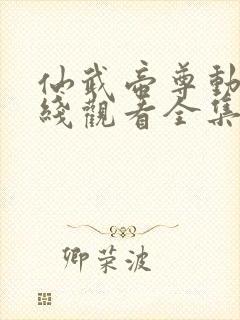 仙武帝尊動
綫觀看全集
卿荣波